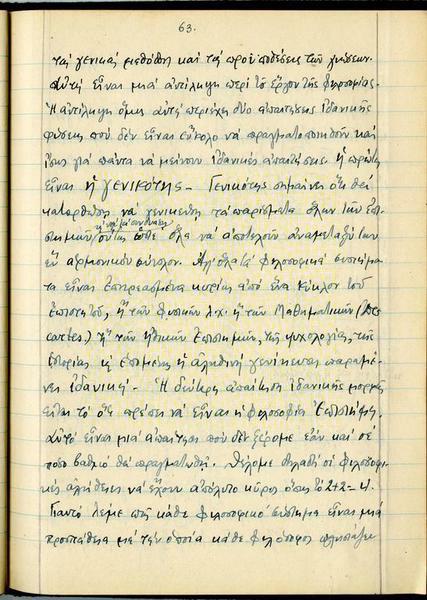 63.
τάς γενικάς μεθόδους καί τάς προϋποθέσεις τῶν γνώσεων.
Αὐτή εἶναι μιά ἀντίληψη περί τό ἔργον τῆς φιλοσοφίας.
Ἡ ἀντίληψη ὅμως αὐτή περιέχει δύο ἀπαιτήσεις ἰδανικῆς
φύσεως πού δέν εἶναι εὔκολο νά πραγματοποιηθοῦν καί
ἴσως γιά πάντα νά μείνουν ἰδανικές ἀπαιτήσεις. ἡ πρώτη
εἶναι ἡ γενικότης – Γενικότης σημαίνει ὅτι θά
κατορθώσῃ νά γενικεύσῃ τά πορίσματα ὅλων τῶν ἐπι-
στημῶν οὕτως ὥστε ὅλα νά ἀποτελοῦν ἀναμεταξύ των
ἕν ἁρμονικόν σύνολον. Ἀλλ' ὅλα τά φιλοσοφικά συστήμα-
τα εἶναι ἐπηρεασμένα κυρίως ἀπό ἕνα κύκλον τοῦ
ἐπιστητοῦ, ἤ τῶν φυσικῶν λ.χ. ἤ τῶν Μαθηματικῶν (Des
cartes) ἤ τῶν ἠθικῶν ἐπιστημῶν, τῆς ψυχολογίας, τῆς
ἱστορίας κ ἑπομένως ἡ ἀληθινή γενίκευσις παραμέ-
νει ἰδανική. – Ἡ δεύτερη ἀπαίτηση ἰδανικῆς μορφῆς
εἶναι τό ὅτι πρέπει νά εἶναι ἡ φιλοσοφία ἐπιστήμη.
Αὐτό εἶναι μιά ἀπαίτηση πού δέν ξέρομε ἐάν καί σέ
ποσο βαθμό θά πραγματωθῇ. Θέλομε δηλαδή οἱ φιλοσοφι-
κές ἀλήθειες νά ἔχουν ἀπόλυτο κῦρος ὅπως τό 2+2=4.
Γιαυτό λέμε πώς κάθε φιλοσοφικό σύστημα εἶναι μιά
προσπάθεια μέ τήν ὁποία κάθε φιλόσοφος πλησιάζει